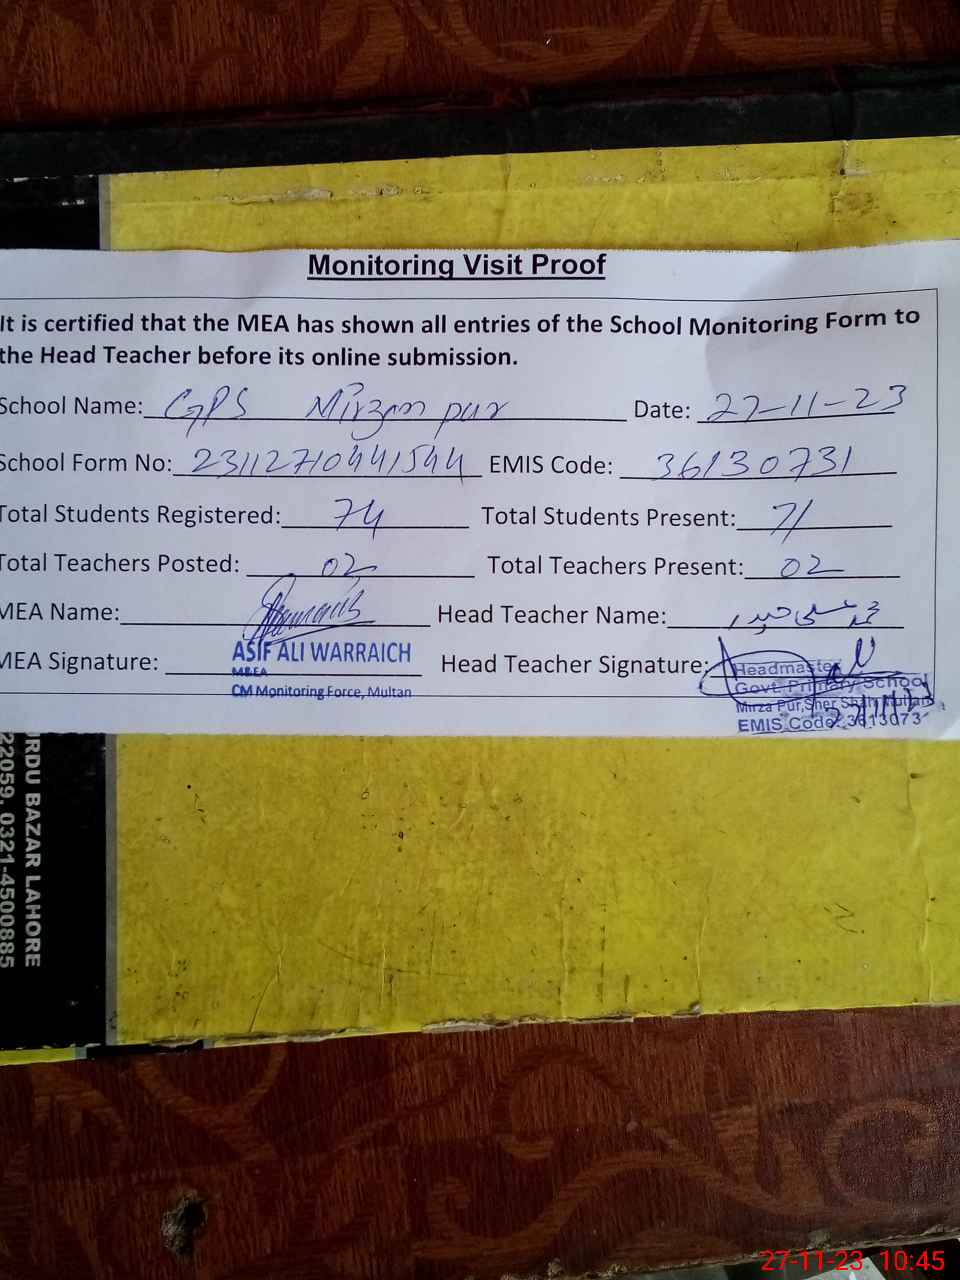 Monitoring Visit Proof
It is certified that the MEA has shown all entries of the School Monitoring Form to
the Head Teacher before its online submission.
School Name: GPS Mirzan pur Date: 27-11-23
School Form No: 23112710441544 EMIS Code: 36130731
Total Students Registered: 74 Total Students Present: 71
Total Teachers Posted: 02 Total Teachers Present: 02
MEA Name: Head Teacher Name: محمد علی حیدر
ASIF ALI WARRAICH
MEA Signature: Head Teacher Signature:
MEA
CM Monitoring Force, Multan
Headmaster
Govt. Primary School
Mirza Pur, Sher Shah Multan
EMIS Code: 3613073
URDU BAZAR LAHORE
22059, 0321-4500885
27-11-23 10:45